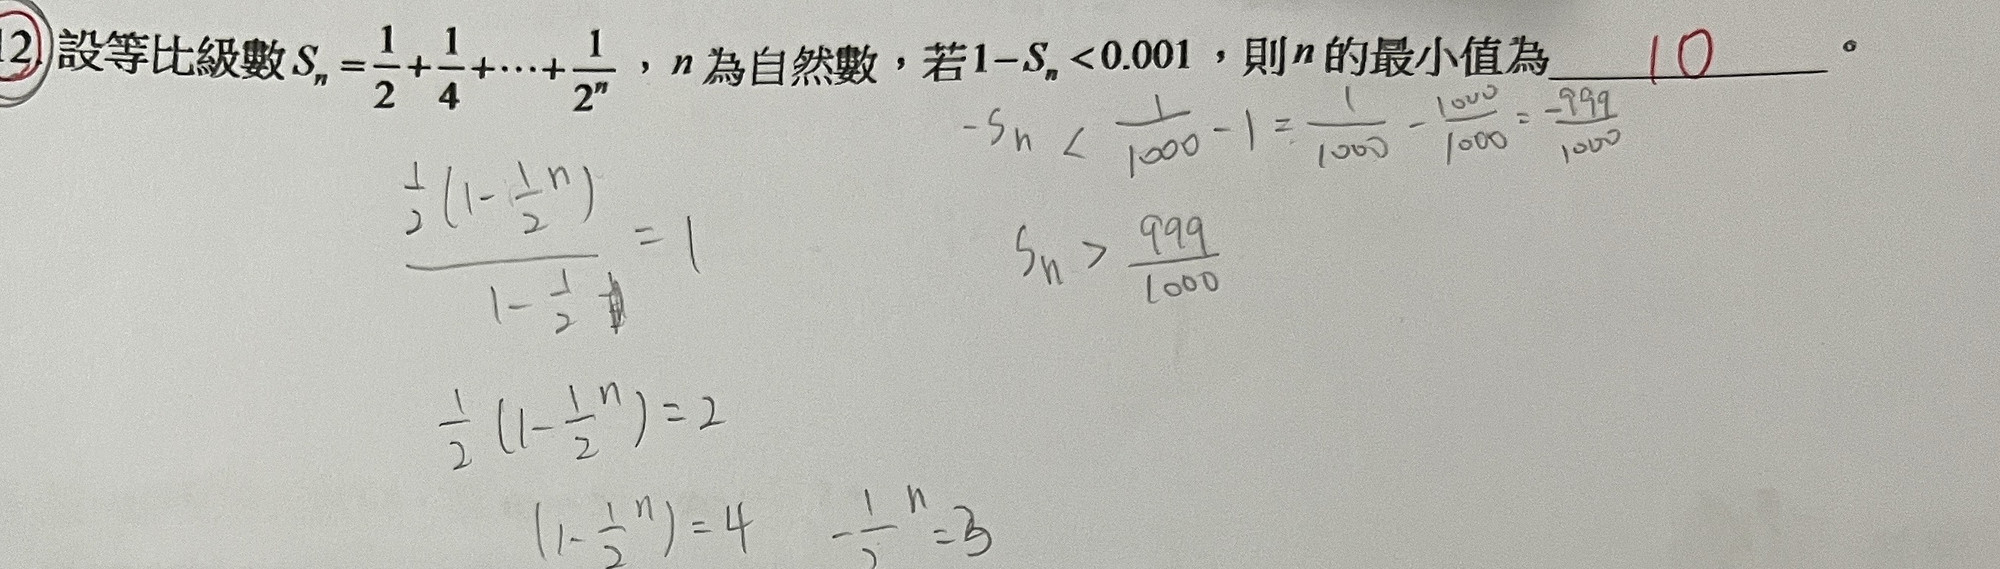 12. 設等比級數 Sₙ = 1/2 + 1/4 + ⋯ + 1/2ⁿ ，n 為自然數，若 1−Sₙ < 0.001，則 n 的最小值為 10 。
-Sₙ < 1/1000 - 1 = 1/1000 - 1000/1000 = -999/1000
(1/2(1-1/2ⁿ))/(1-1/2) = 1
Sₙ > 999/1000
1/2 (1-1/2ⁿ) = 2
(1-1/2ⁿ) = 4   -1/2ⁿ = 3